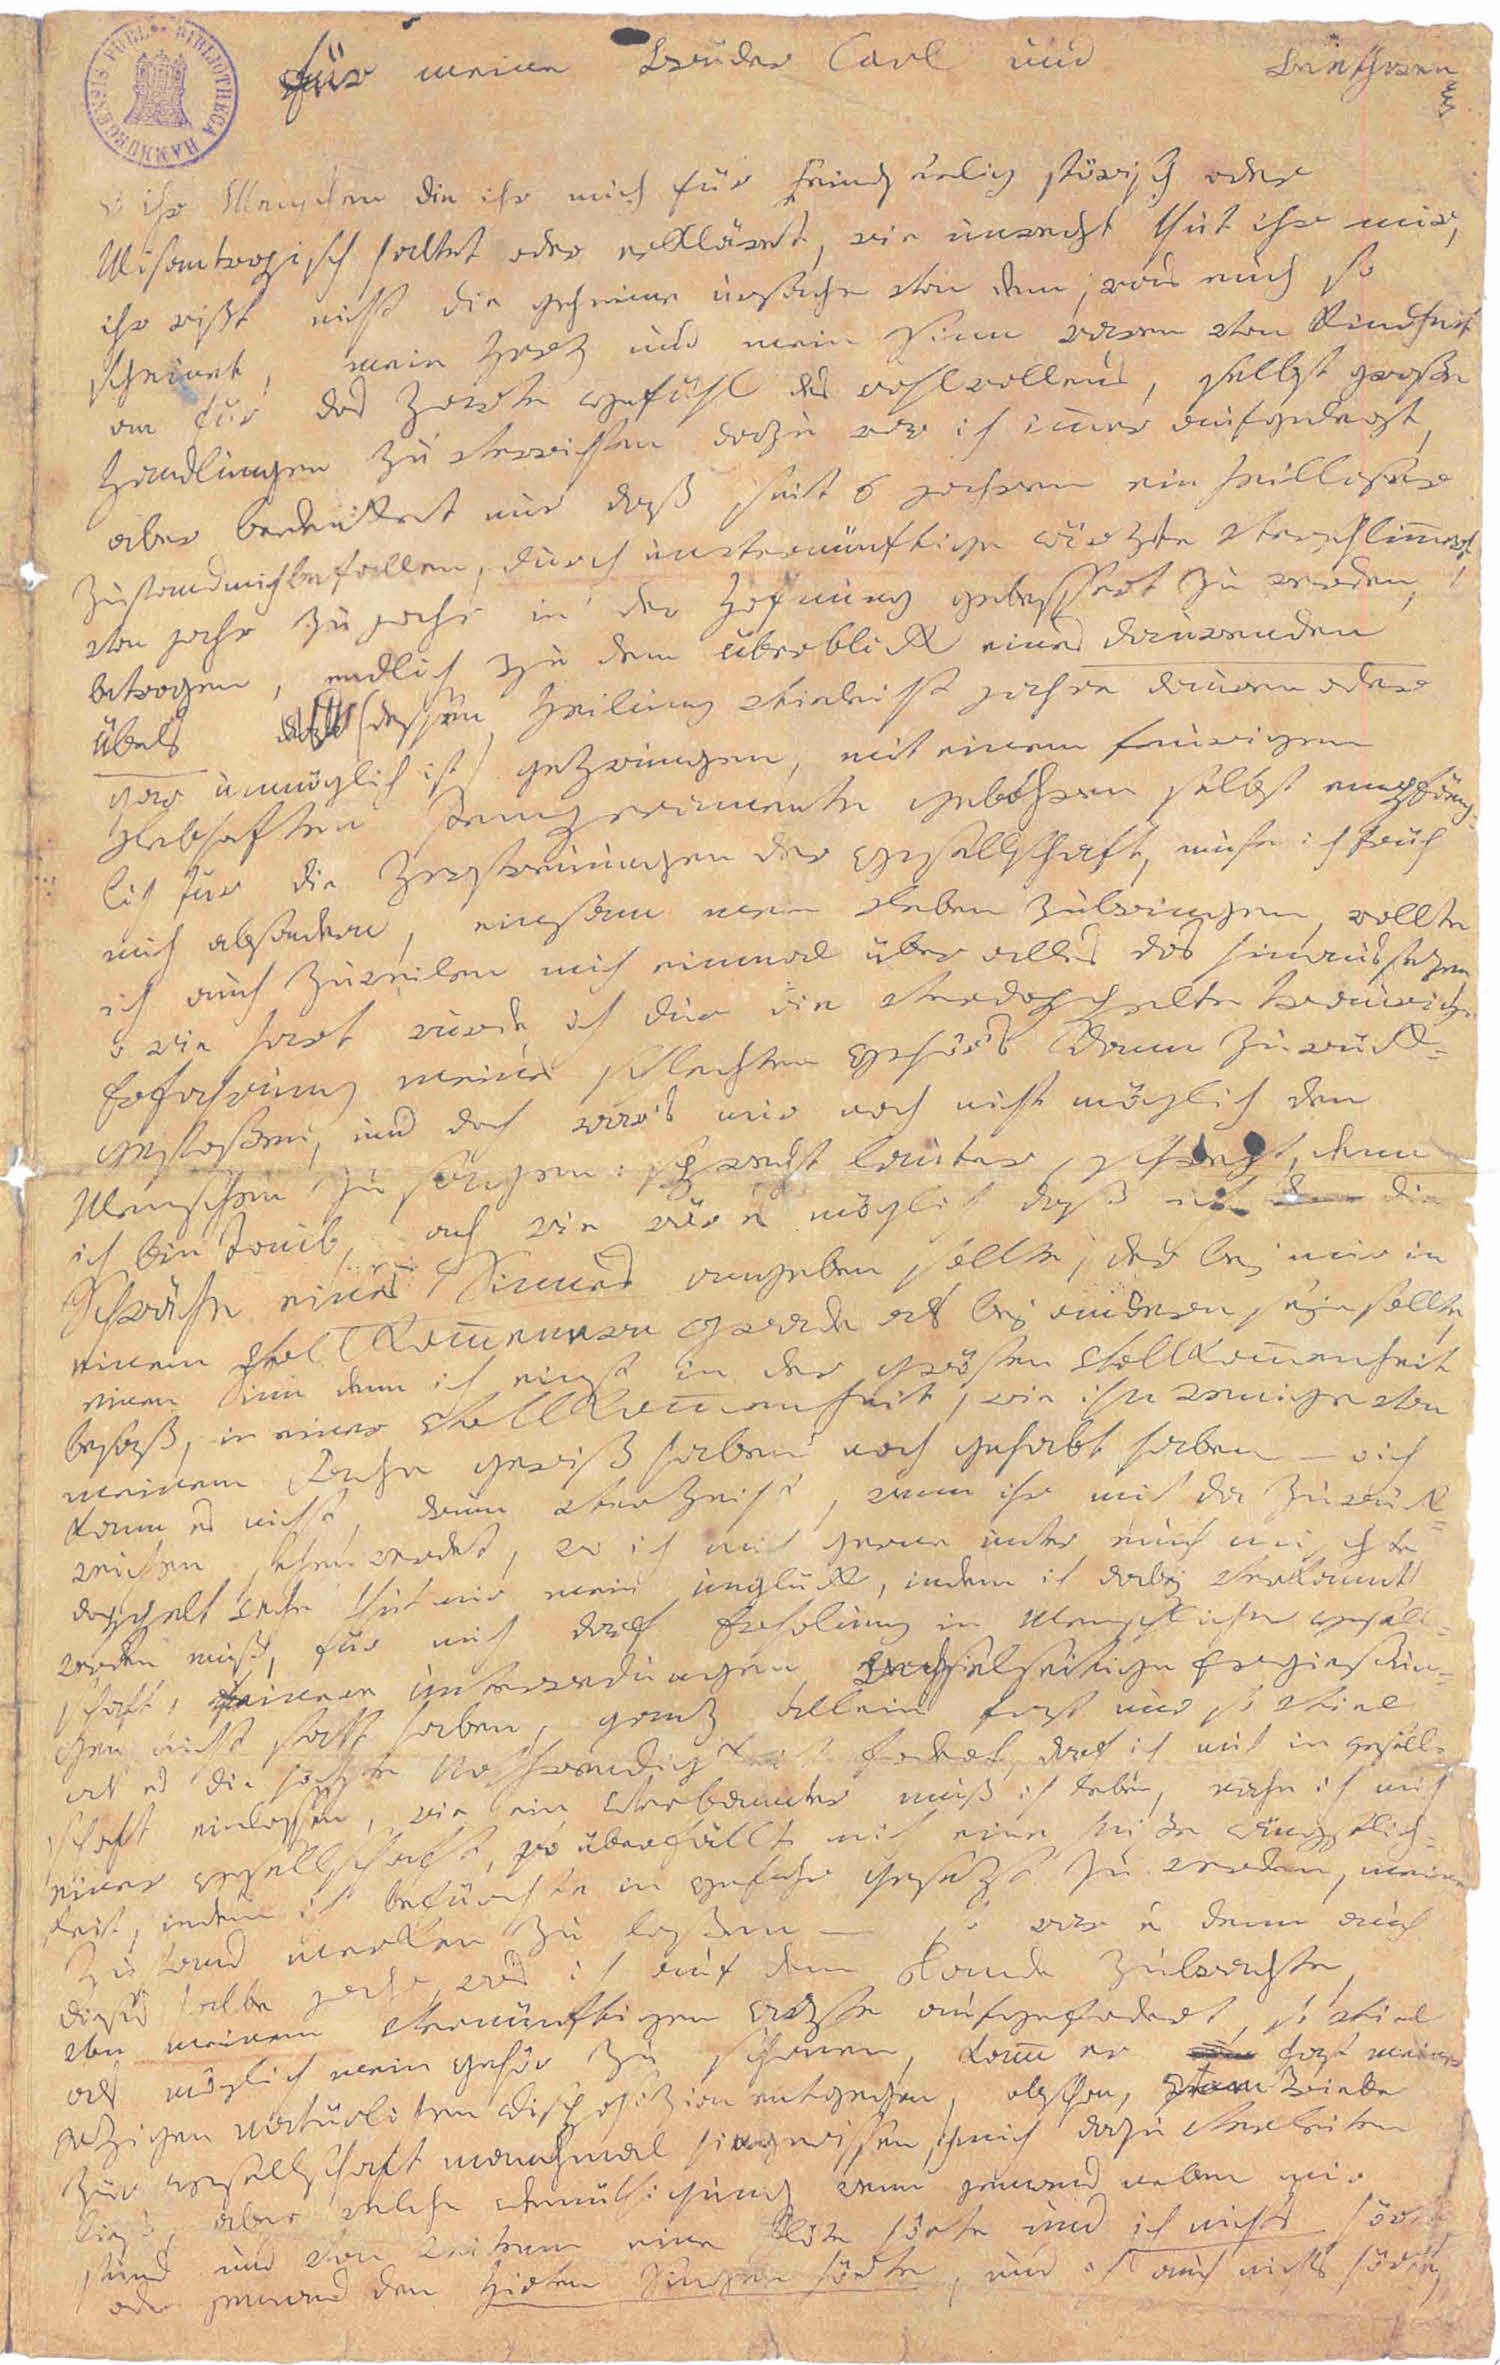 HAMBURGENSIS PUBL. BIBLIOTHECA
für meine brüder Carl und Beethoven
o ihr Menschen die ihr mich für Feindseelig störisch oder
Misantropisch haltet oder erkläret, wie unrecht thut ihr mir,
ihr wißt nicht die geheime ursache von dem, was euch so
scheinet, mein Herz und mein Sinn waren von Kindheit
an für das Zarte Gefühl des wohlwollens, selbst große
Handlungen zu verrichten dazu war ich imer aufgelegt,
aber bedenket nur daß seit 6 jahren ein heilloser
Zustand mich befallen, durch unvernünftige ärzte verschlimert,
von jahr zu jahr in der Hofnung gebessert zu werden,
betrogen, endlich zu dem überblick eines daurenden
Übels (dessen Heilung vieleicht jahre dauren oder
gar unmöglich ist) gezwungen, mit einem feurigen
Lebhaften Temperamente gebohren selbst empfäng-
lich für die Zerstreuungen der Gesellschaft, muste ich früh
mich absondern, einsam mein Leben zubringen, wollte
ich auch zuweilen mich einmal über alles das hinaussezen,
o wie hart wurde ich dur die verdoppelte traurige
Erfahrung meines schlechten Gehör's dann zurück-
gestoßen, und doch war's mir noch nicht möglich den
Menschen zu sagen: sprecht lauter, schreyt, denn
ich bin taub, ach wie wär es möglich daß ich die
Schwäche eines Sinnes angeben sollte, der bey mir in
einem vollkommenern Grade als bey andern seyn sollte,
einen Sinn denn ich einst in der grösten Vollkommenheit
besaß, in einer Vollkommenheit, wie ihn wenige von
meinem Fache gewiß haben noch gehabt haben – o ich
kann es nicht, drum verzeiht, wenn ihr mich da zurück-
weichen sehen werdet, wo ich mich gerne unter euch mischte
doppelt wehe thut mir mein unglück, indem ich dabey verkannt
werden muß, für mich darf Erholung in Menschlicher Gesell-
schaft, feinere unterredungen, wechselseitige Ergießun-
gen nicht statt haben, ganz allein fast nur so viel
als es die höchste Nothwendigkeit fodert, darf ich mich in gesell-
schaft einlassen, wie ein Verbannter muß ich leben, nahe ich mich
einer Gesellschaft, so überfällt mich eine heiße ängstlich-
keit, indem ich befürchte in Gefahr gesetzt zu werden, meinen
Zustand merken zu laßen – so war es denn auch
dieses halbe jahr, was ich auf dem Lande zubrachte,
von meinem vernünftigen Arzte aufgefodert, so viel
als möglich mein Gehör zu schonen, kamm er fast meiner
jetzigen natürlichen Disposizion entgegen, obschon, vom Triebe
zur Gesellschaft manchmal hingerissen, ich mich dazu verleiten
ließ, aber welche Demüthigung wenn jemand neben mir
stund und von weitem eine Flöte hörte und ich nichts hörte,
oder jemand den Hirten Singen hörte, und ich auch nichts hörte,